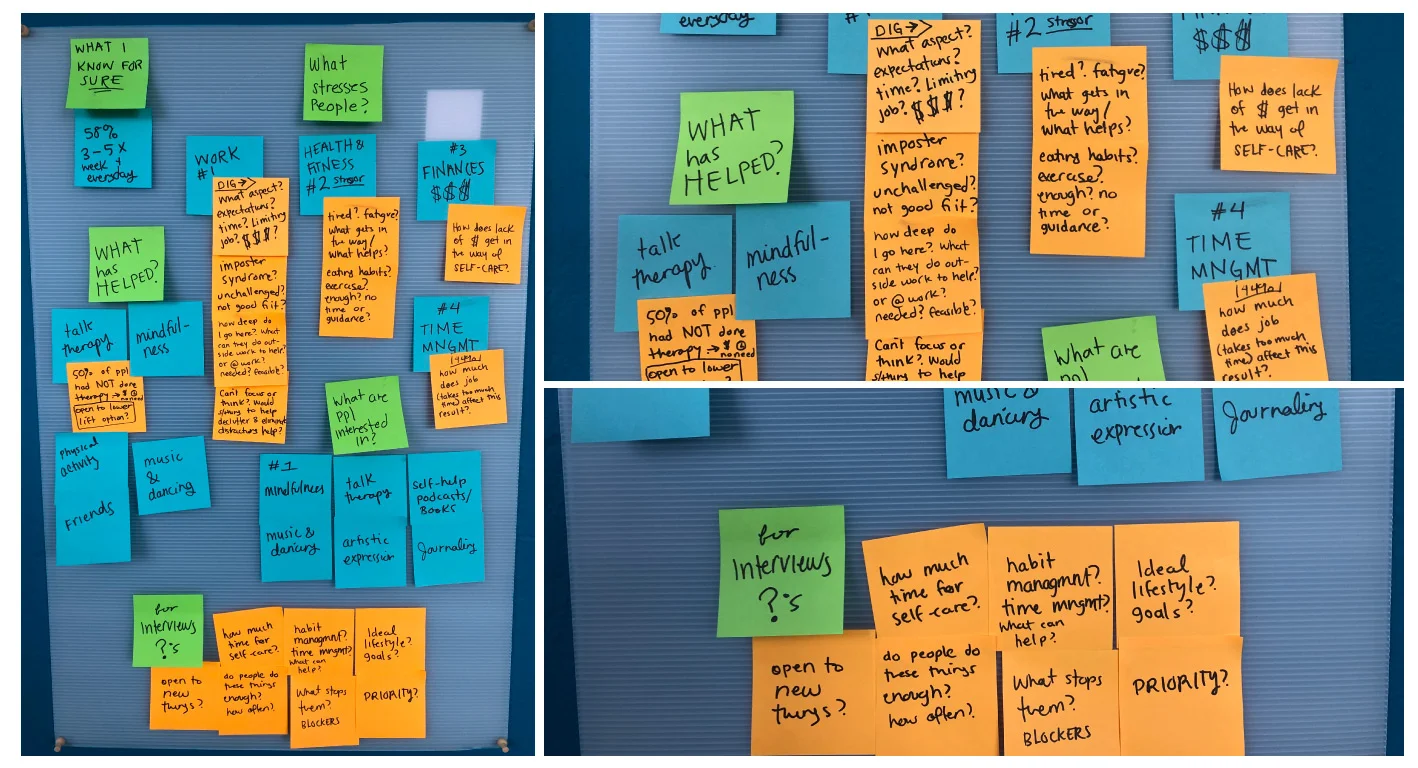 WHAT I
KNOW FOR
SURE
58%
3-5x
week +
everyday
What
stresses
People?
WORK
#1
HEALTH &
FITNESS
#2 stressor
#3
FINANCES
$$$
DIG →
what aspect?
expectations?
time? Limiting
job? $$$?
imposter
syndrome?
unchallenged?
not good fit?
how deep do
I go here? What
can they do out-
side work to help?
or @ work?
needed? feasible?
Can't focus or
think? Would
s/thing to help
declutter & eliminate
distractions help?
tired? fatigue?
what gets in
the way/
what helps?
eating habits?
exercise?
enough? no
time or
guidance?
How does lack
of $ get in
the way of
SELF-CARE?
#4
TIME
MNGMT
how much
does job
(takes too much
time) affect this
result?
WHAT
has
HELPED?
talk
therapy
mindful-
ness
50% of ppl
had NOT done
therapy → $
no need
open to lower
lift option?
physical
activity
Friends
music
&
dancing
What are
ppl
interested
in?
#1
mindfulness
talk
therapy
self-help
podcasts/
BOOKS
music &
dancing
artistic
expression
Journaling
for
Interviews
?'s
how much
time for
self-care?
habit
managmnt?
time mngmt?
what can
help?
Ideal
lifestyle?
goals?
open to
new
things?
do people do
these things
enough?
how often?
What stops
them?
BLOCKERS
PRIORITY?
everyday
#1
#2 stressor
$$$
DIG →
what aspect?
expectations?
time? Limiting
job? $$$?
imposter
syndrome?
unchallenged?
not good fit?
how deep do
I go here? What
can they do out-
side work to help?
or @ work?
needed? feasible?
Can't focus or
think? Would
s/thing to help
tired? fatigue?
what gets in
the way/
what helps?
eating habits?
exercise?
enough? no
time or
guidance?
How does lack
of $ get in
the way of
SELF-CARE?
WHAT
has
HELPED?
talk
therapy
mindful-
ness
50% of ppl
had NOT done
therapy → $
no need
open to lower
#4
TIME
MNGMT
how much
does job
(takes too much
time) affect this
result?
what are
music &
dancing
artistic
expression
Journaling
for
Interviews
?'s
how much
time for
self-care?
habit
managmnt?
time mngmt?
what can
help?
Ideal
lifestyle?
goals?
open to
new
things?
do people do
these things
enough?
how often?
What stops
them?
BLOCKERS
PRIORITY?